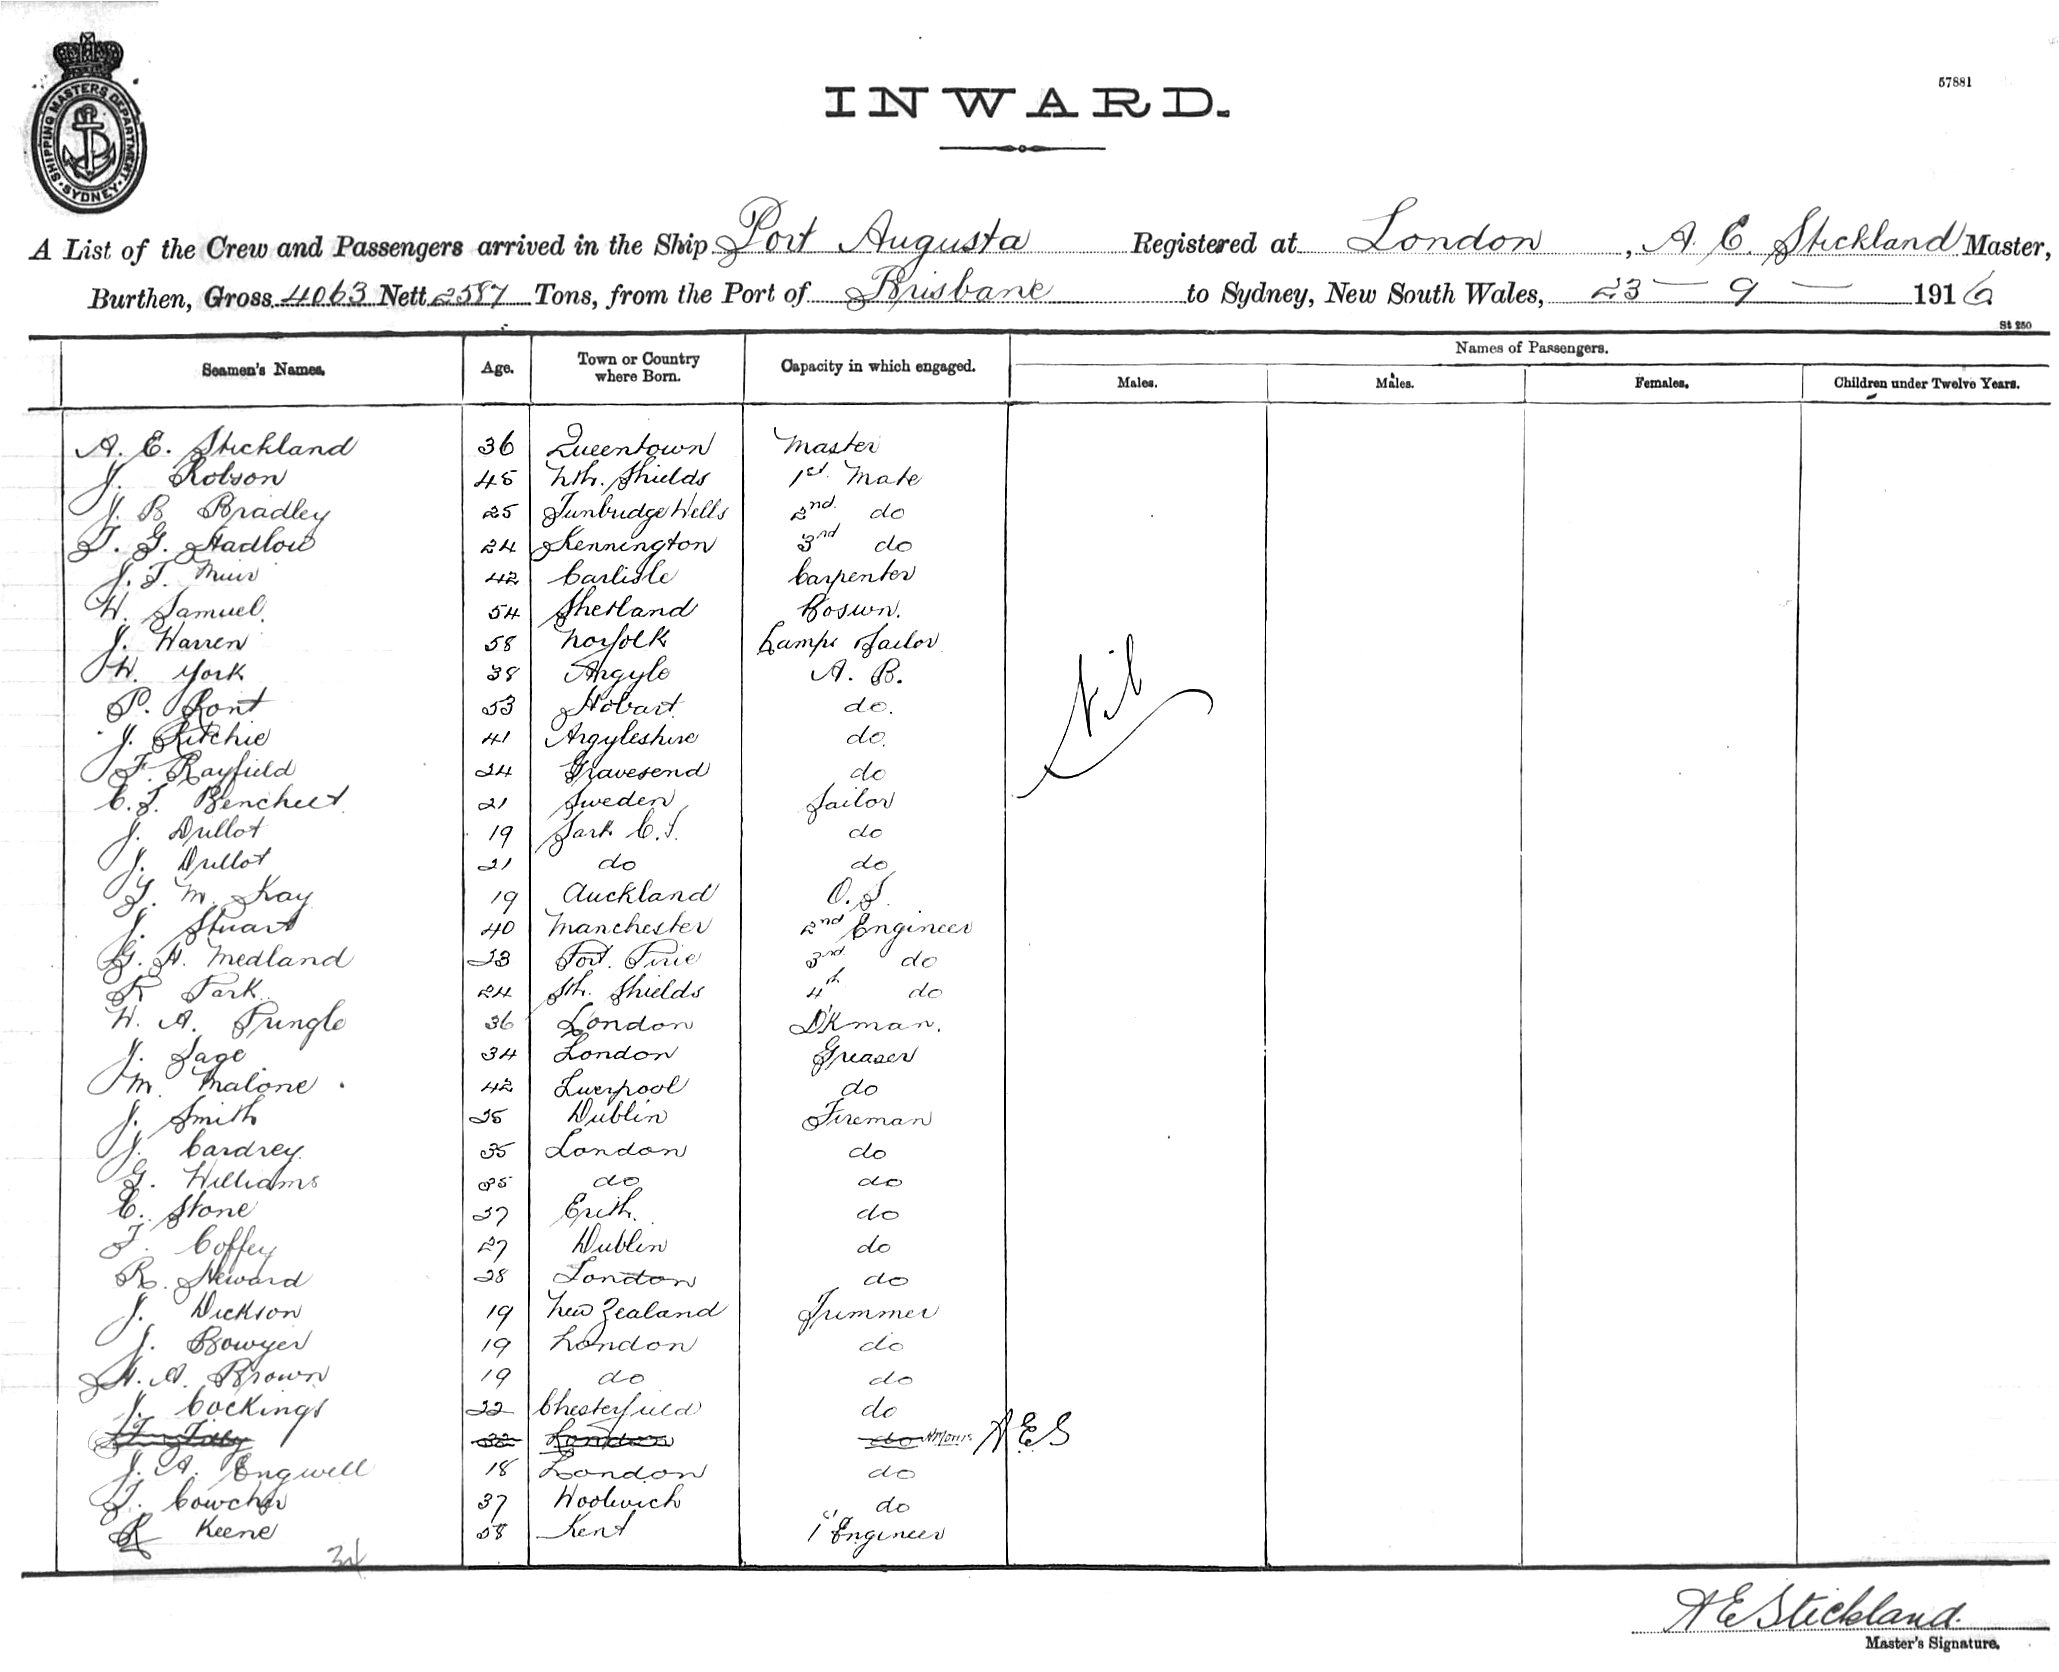 SHIPPING MASTERS DEPARTMENT SYDNEY
57881
INWARD.
A List of the Crew and Passengers arrived in the Ship Port Augusta Registered at London, A. E. Stickland Master,
Burthen, Gross 4063 Nett 2587 Tons, from the Port of Brisbane to Sydney, New South Wales, 23 - 9 - 1916
St 250
Seamen's Names. Age. Town or Country where Born. Capacity in which engaged. Names of Passengers.
Males. Males. Females. Children under Twelve Years.
A. E. Stickland 36 Queentown Master
J. Robson 45 Nth. Shields 1st Mate
J. B Bradley 25 Tunbridge Wells 2nd do
T. G. Hadlow 24 Kennington 3rd do
J. T. Muir 42 Carlisle Carpenter
W. Samuel 54 Shetland Boswn.
J. Warren 58 Norfolk Lamps Sailor
W. York 38 Argyle A. B.
P. Pont 53 Hobart do.
J. Ritchie 41 Argyleshire do.
F. Rayfield 24 Gravesend do
C. J. 21 Sweden Sailor
J. 19 Sark C.I. do
J. 21 do do
T. M. Kay 19 Auckland O. S.
J. Stuart 40 Manchester 2nd Engineer
G. H. Medland 23 Port Pirie 3rd do
R Park 24 Sth. Shields 4th do
W. A. Pringle 36 London D'Kman.
J. Sage 34 London Greaser
M. Malone 42 Liverpool do
J. Smith 25 Dublin Fireman
J. Cardrey 35 London do
G. Williams 35 do do
C. Stone 37 Erith. do
T. Coffey 27 Dublin do
R. Steward 28 London do
J. Dickson 19 New Zealand Trimmer
J. Bowyer 19 London do
H. A. Brown 19 do do
J. Cockings 22 Chesterfield do
Tilly 32 London do A E S
J. A. Engwell 18 London do
T. Cowcher 37 Woolwich do
R Keene 58 Kent 1st Engineer
34
Nil
A E Stickland.
Master's Signature.